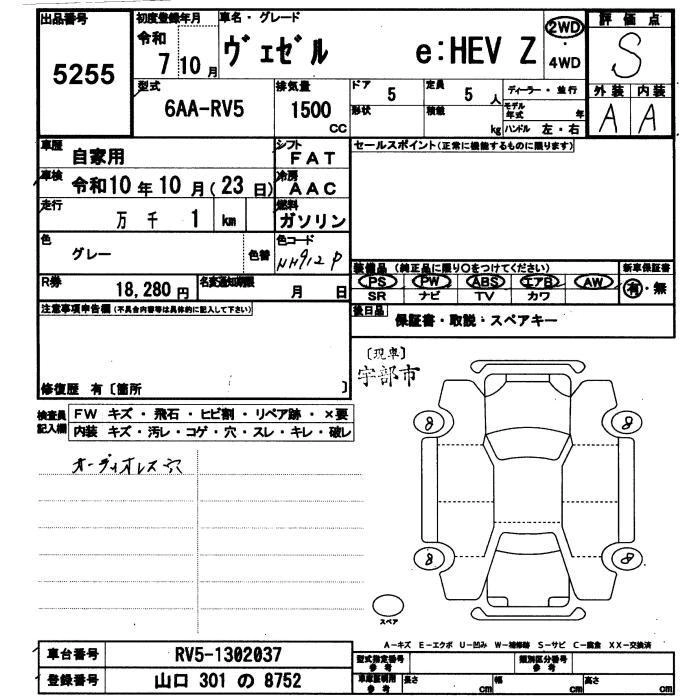 出品番号 5255
初度登録年月 令和 7年 10月
車名・グレード ヴェゼル e:HEV Z
2WD・4WD
評価点 S
外装 A 内装 A
型式 6AA-RV5
排気量 1500 CC
ドア 5
形状
定員 5 人
積載 kg
ディーラー・並行
モデル年式 年
ハンドル 左・右
車歴 自家用
シフト FAT
セールスポイント(正常に機能するものに限ります)
車検 令和10年10月(23日)
冷房 AAC
走行 万 千 1 km
燃料 ガソリン
色 グレー
色替
色コード NH912P
装備品 (純正品に限り○をつけてください)
新車保証書 有・無
PS PW ABS エアB AW
SR ナビ TV カワ
R券 18,280円
名変通知期限 月 日
後日品 保証書・取説・スペアキー
注意事項申告欄(不具合内容等は具体的に記入して下さい)
修復歴 有〔箇所 〕
〔現車〕
宇部市
検査員記入欄
FW キズ・飛石・ヒビ割・リペア跡・×要
内装 キズ・汚レ・コゲ・穴・スレ・キレ・破レ
オーディオレス穴
8 8
8 8
スペア
A-キズ E-エクボ U-凹み W-補修跡 S-サビ C-腐食 XX-交換済
車台番号 RV5-1302037
登録番号 山口 301 の 8752
型式指定番号 参考
類別区分番号 参考
車庫証明用 参考
長さ cm 幅 cm 高さ cm